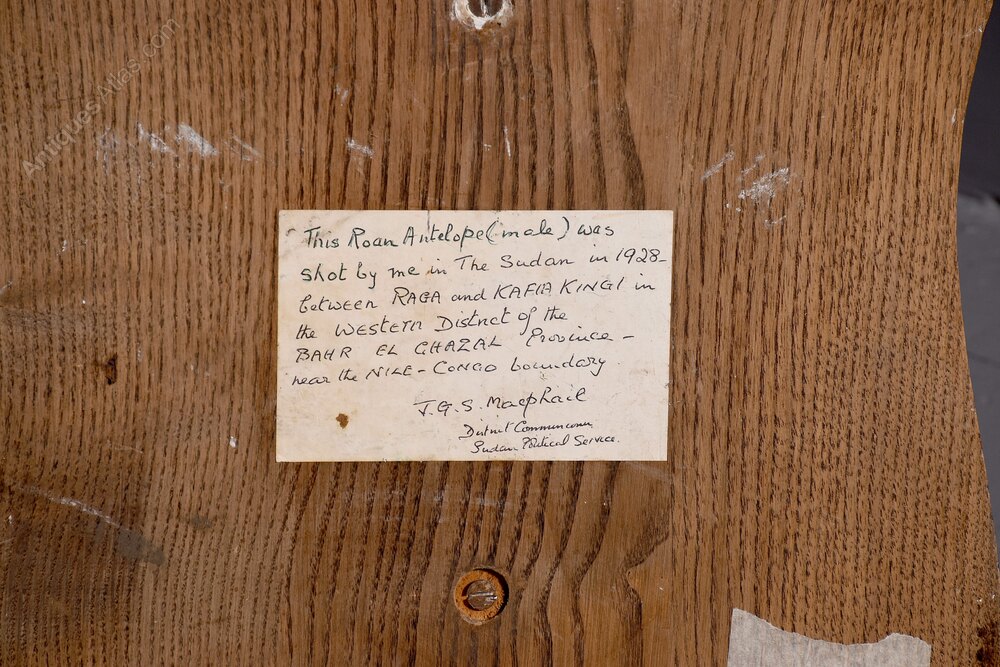 AntiquesAtlas.com
This Roan Antelope (male) was
shot by me in The Sudan in 1928-
between RAGA and KAFIA KINGI in
the WESTERN District of the
BAHR EL GHAZAL Province -
near the NILE-CONGO boundary.
J.G.S. Macphail
District Commissioner
Sudan Political Service.